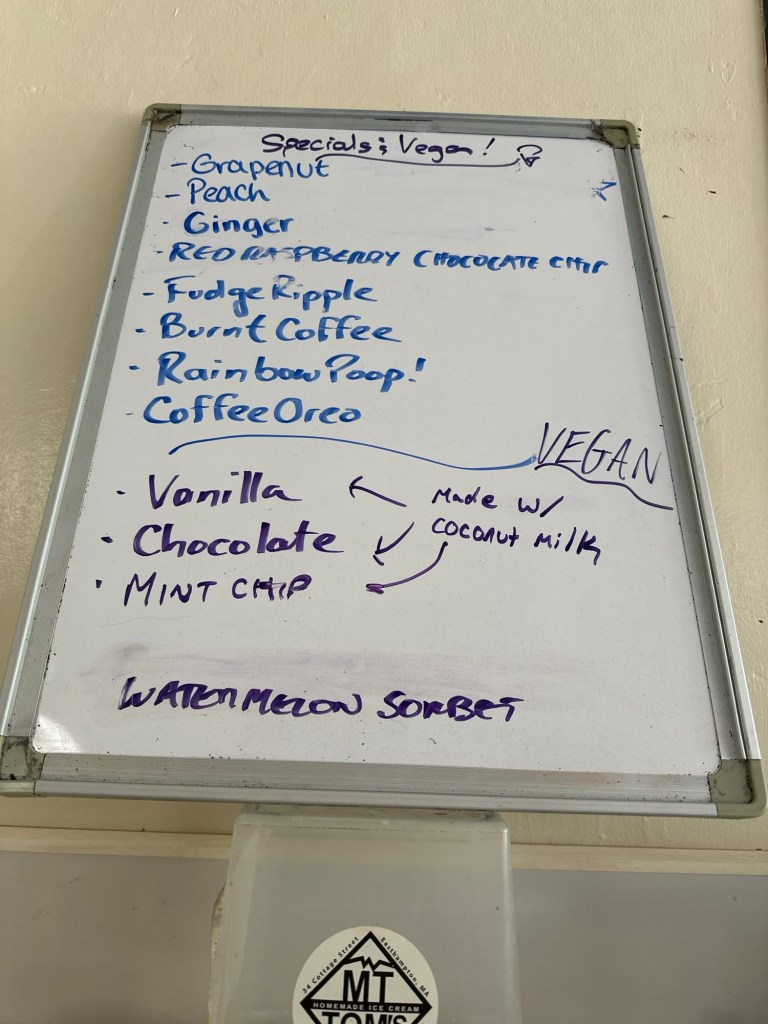 Specials & Vegan!
- Grapenut
- Peach
· Ginger
· RED RASPBERRY CHOCOLATE CHIP
- Fudge Ripple
· Burnt Coffee
· Rainbow Poop!
· Coffee Oreo
VEGAN
· Vanilla
Made w/
coconut milk
· Chocolate
· MINT CHIP
WATERMELON SORBET
34 Cottage Street Easthampton, MA
MT
HOMEMADE ICE CREAM
TOM'S